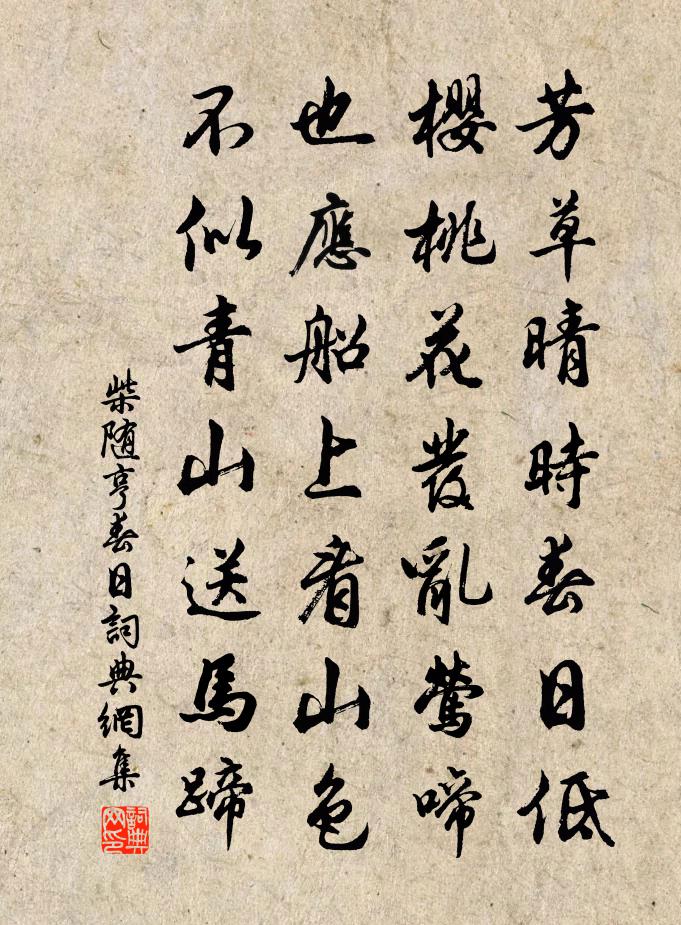 芳草晴時春日低
櫻桃花發亂鶯啼
也應船上看山色
不似青山送馬蹄
柴随亨春日詞典網集
詞典网印